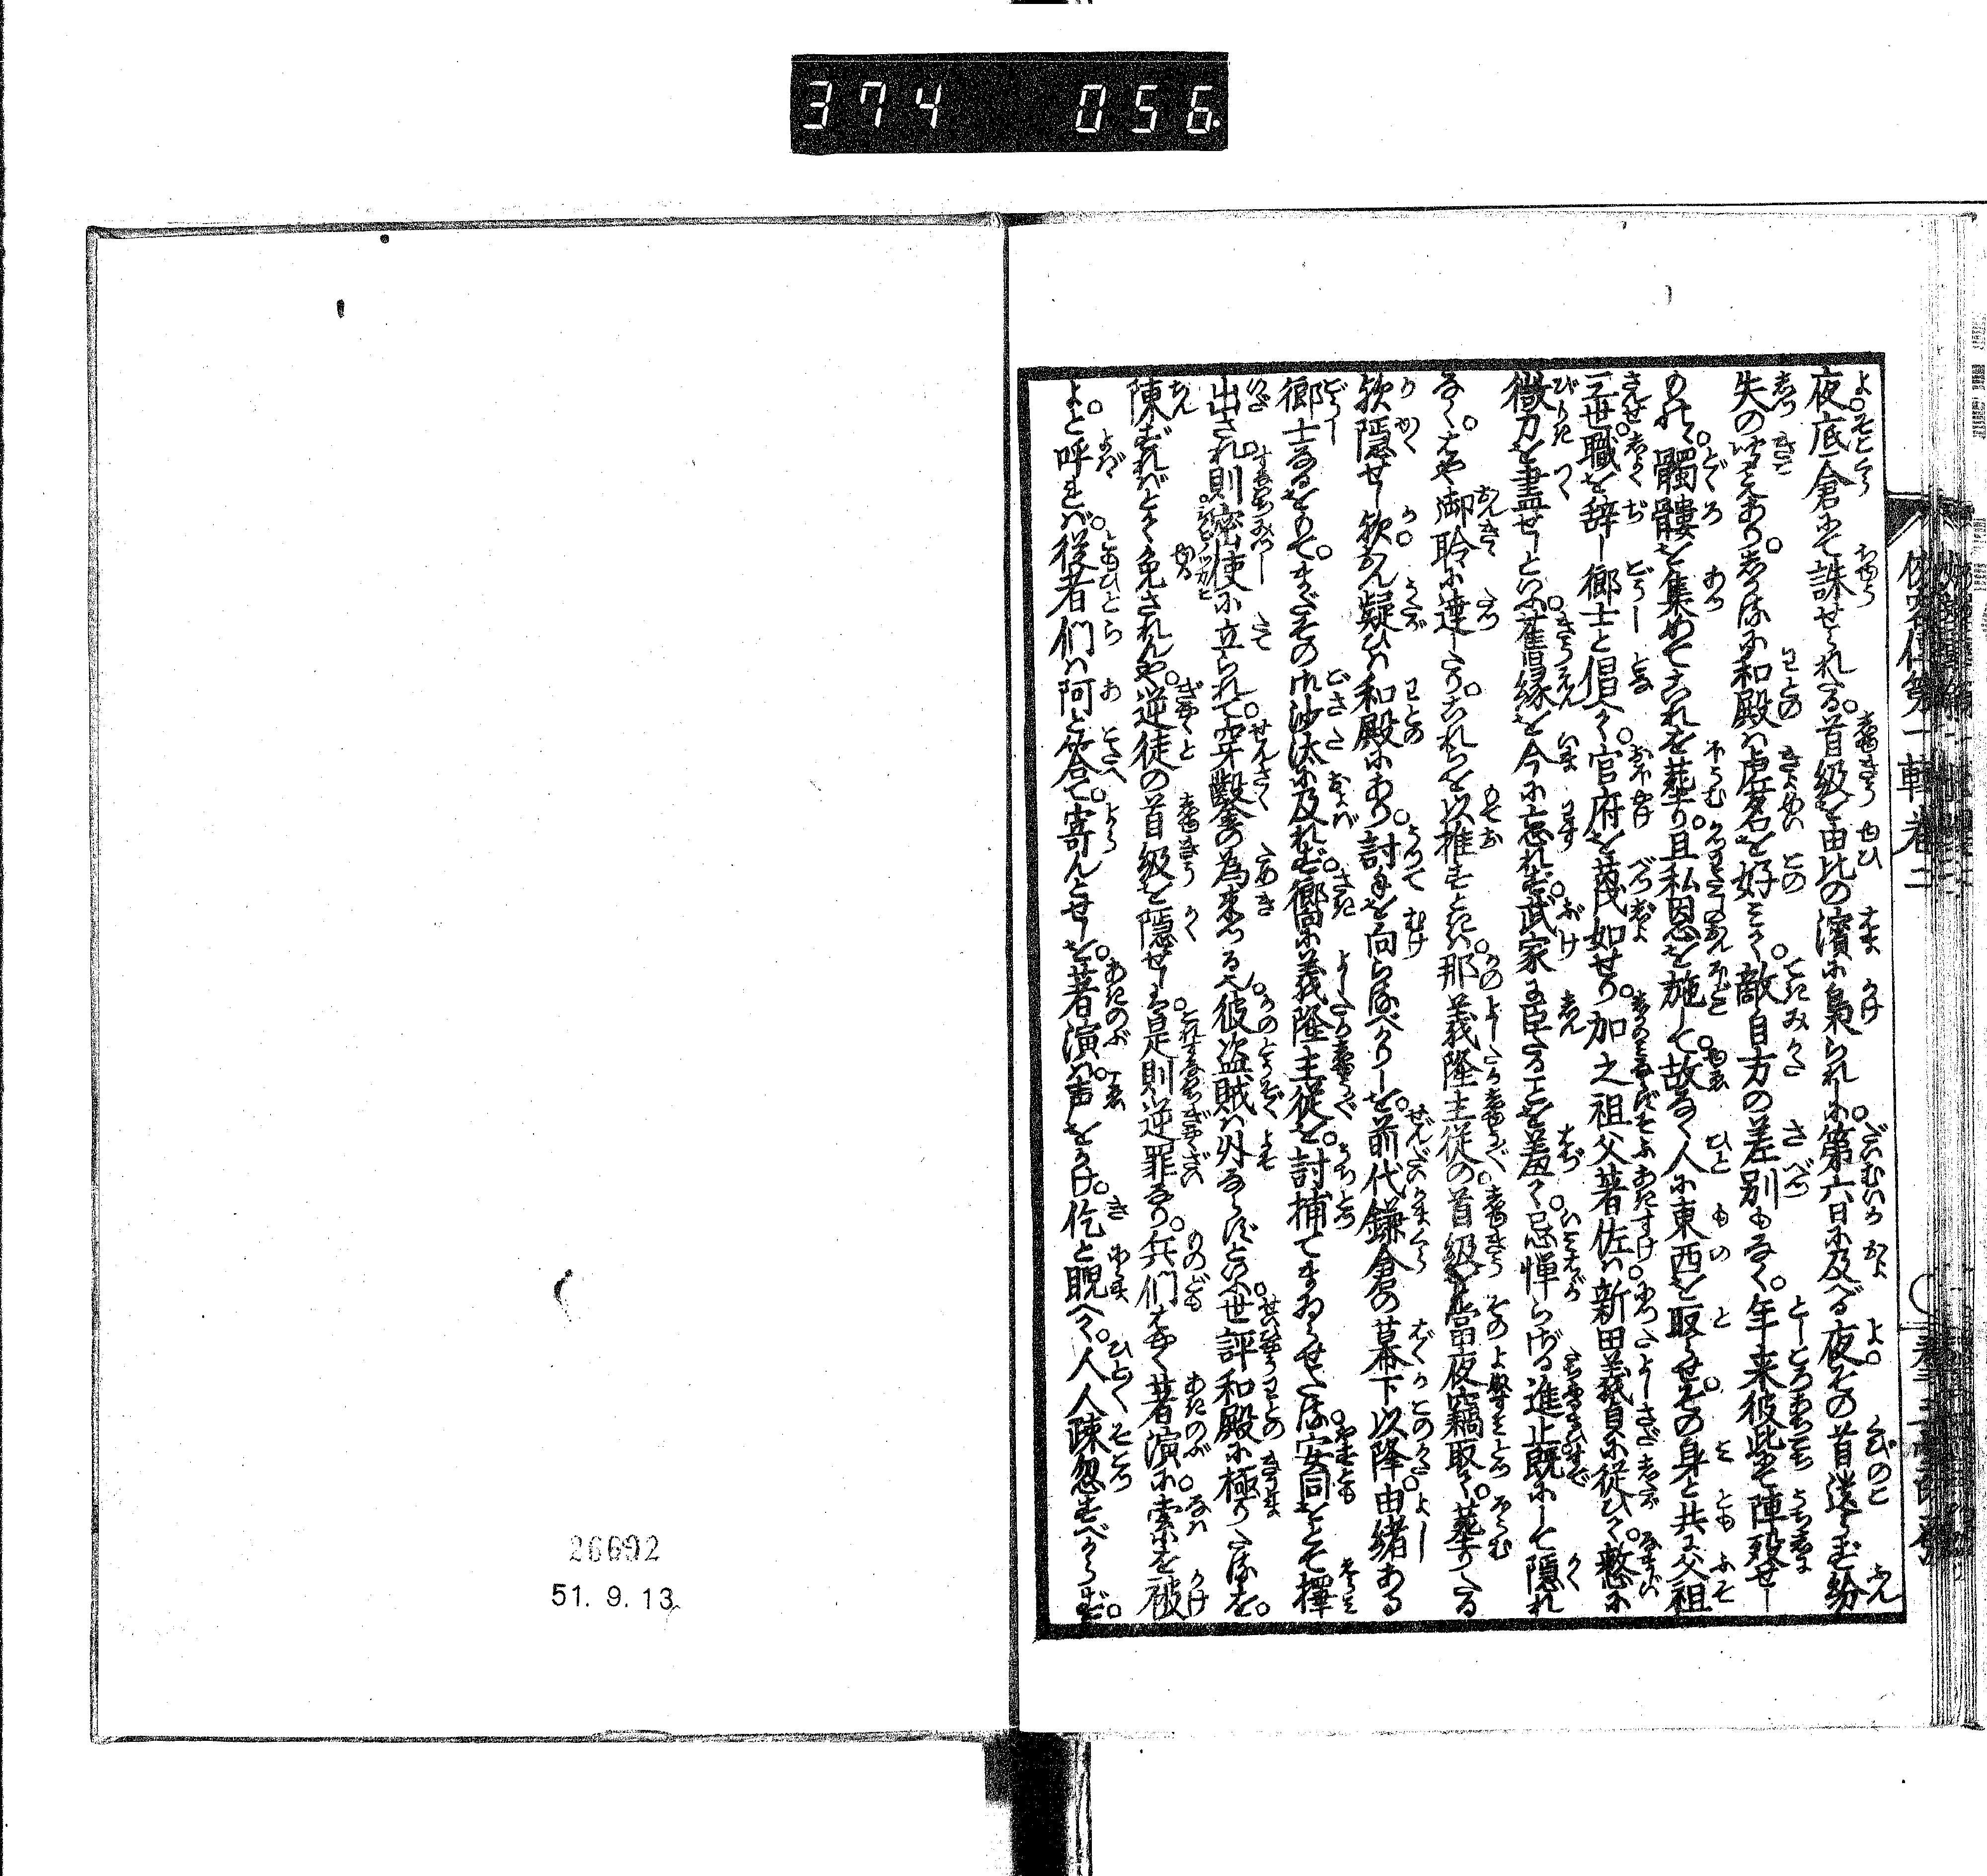 374 056
夜底倉にて誅せられたる首級を由比の濱に梟られしに第六日に及べる夜その首遺らず紛
失の聞えありしかるに和殿は虚名を好みて敵自方の差別もなく年来彼此にて陣歿せし
ものゝ髑髏を集めてこれを葬り且私恩を施して故なく人に東西を取らせその身と共に父祖
三世職を辞し郷士と倡へて官府を蔑如せり加之祖父著佐は新田義貞に従ひて憖に
微力を盡せしといふ舊縁を今に忘れず武家に臣たることを羞て忌憚らざる進止既にして隠れ
なくはや御聆に達したりこれらを以推すときは那義隆主従の首級を當夜竊取て葬りたる
歟隠せし歟かん疑ひは和殿にあり討手を向らるべかりしを前代鎌倉の幕下以降由緒ある
郷士なるをもてまだその御沙汰に及れず郷向に義隆主従を討捕てまゐらせたる安同をとて擇
出され則密使に立られて穿鑿の為来つる也彼盗賊は外ならずといふ世評和殿に極りたるを
陳ずればとて免されんや逆徒の首級を隠せしは是則逆罪なり兵們はやく著演に索を被
よと呼はれば従者們は阿と答て寄んとせしを著演は声をかけ佶と睨へて人人疎忽すべからず
26692
51. 9. 13